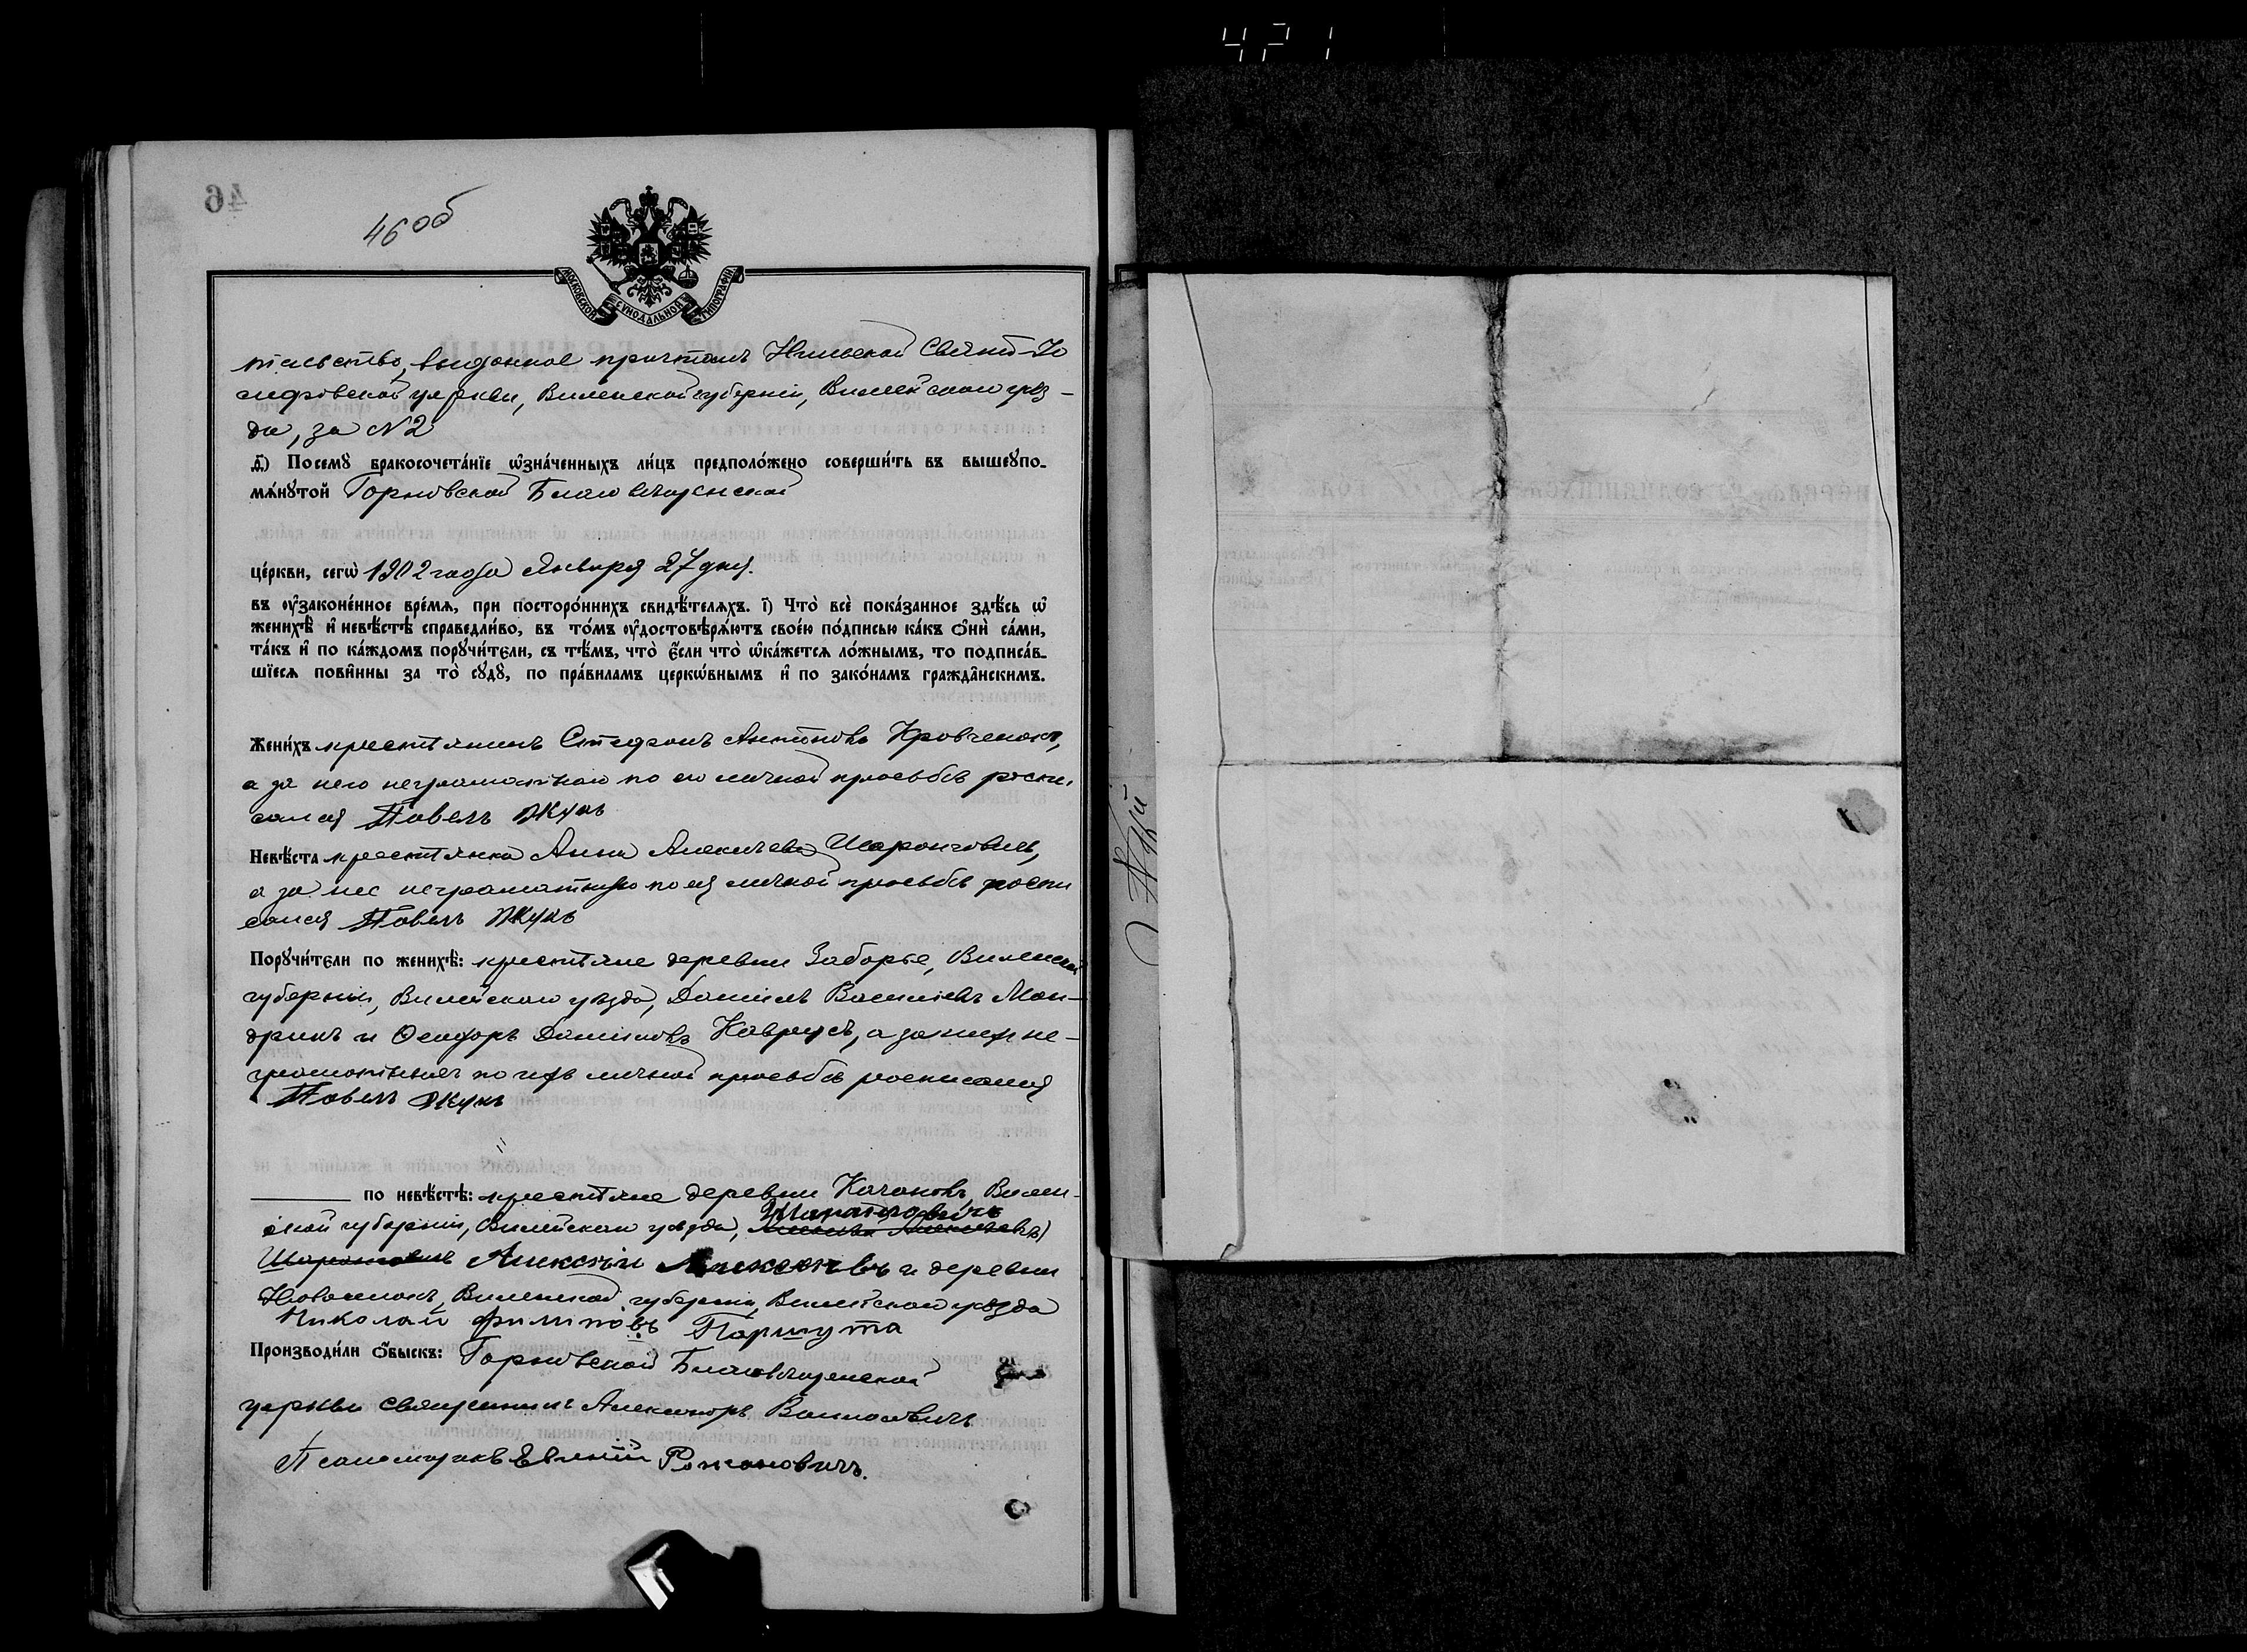 421
46
46 об
МОСКОВСКОЙ СѴНОДАЛЬНОЙ ТИПОГРАФІИ
тельство, выданное причтомъ Свято-Іо
сифовской церкви, Виленской губерніи, Вилейскаго уѣз-
да, за N2
д҃) Посемꙋ бракосочета́нїе ѡ҆зна́ченныхъ ли́цъ предполо́жено соверши́ть въ вышеꙋпо-
мѧ́нꙋтой Горновской Благовѣщенской
це́ркви, сегѡ̀ 1902 года Января 27 дня.
въ ᲂу҆законе́нное вре́мѧ, при посторо́ннихъ свидѣ́телѧхъ. і҃) Что̀ всѐ пока́занное здѣ́сь ѡ҆
женихѣ̀ и҆ невѣ́стѣ справедли́во, въ то́мъ ᲂу҆достовѣрѧ́ютъ свое́ю по́дписью ка́къ ѻ҆нѝ са́ми,
та́къ и҆ по ка́ждомъ порꙋчи́тели, съ тѣ́мъ, что̀ є҆́сли что̀ ѡ҆ка́жетсѧ ло́жнымъ, то подписа́в-
шїесѧ пови́нны за то̀ сꙋдꙋ̀, по пра́виламъ церко́внымъ и҆ по зако́намъ гражда́нскимъ.
Жени́хъ крестьянинъ Стефанъ Антоновъ Кровченокъ,
а за него неграмотнаго по его личной просьбѣ роспи-
сался Павелъ Жукъ
Невѣ́ста крестьянка Анна Алексѣева Шаронговичъ,
а за нее неграмотную по ея личной просьбѣ роспи
сался Павелъ Жукъ
Порꙋчи́тели по женихѣ̀: крестьяне деревни Заборье, Виленской
губерніи, Вилейскаго уѣзда, Даніилъ Васильевъ Ман-
дрикъ и Ѳеодоръ Даниловъ Каврусъ, а за нихъ не-
грамотныхъ по ихъ личной просьбѣ росписался
Павелъ Жукъ
по невѣ́стѣ: крестьяне деревни Качановъ, Вилен-
ской губерніи, Вилейскаго уѣзда, Шаранговичъ
Шаронговичъ Алексѣй Алексеевъ и деревни
Новоселокъ, Виленской губерніи, Вилейскаго уѣзда
Николай Филиповъ Паршута
Производи́ли ѻ҆́быскъ: Горновской Благовѣщенской
церкви священникъ Александръ
Псаломщикъ Евгеній Романовичъ.